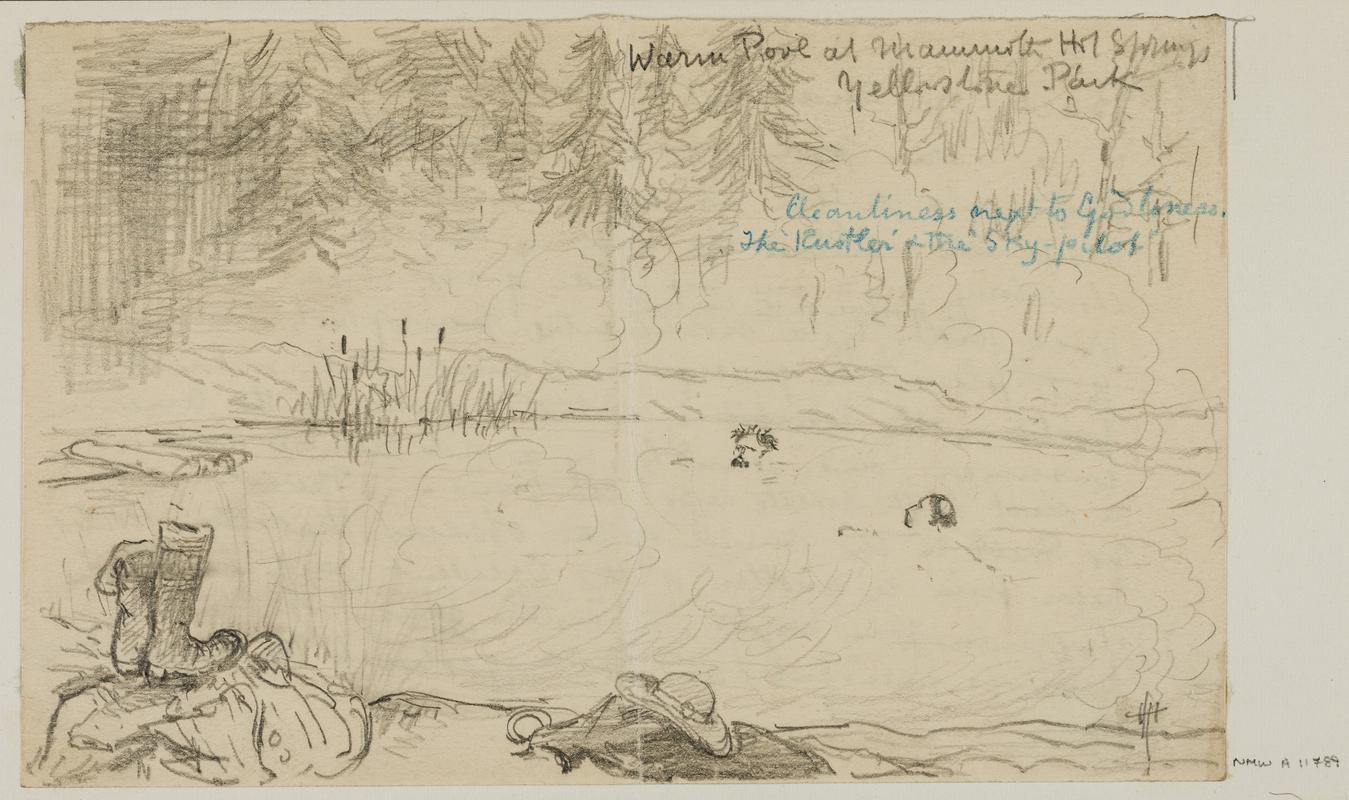 Warm Pool at Mammoth Hot Springs
Yellowstone Park
Cleanliness next to Godliness.
The 'Rustler' & the 'Sky-pilot'
HH
NMW A 11789